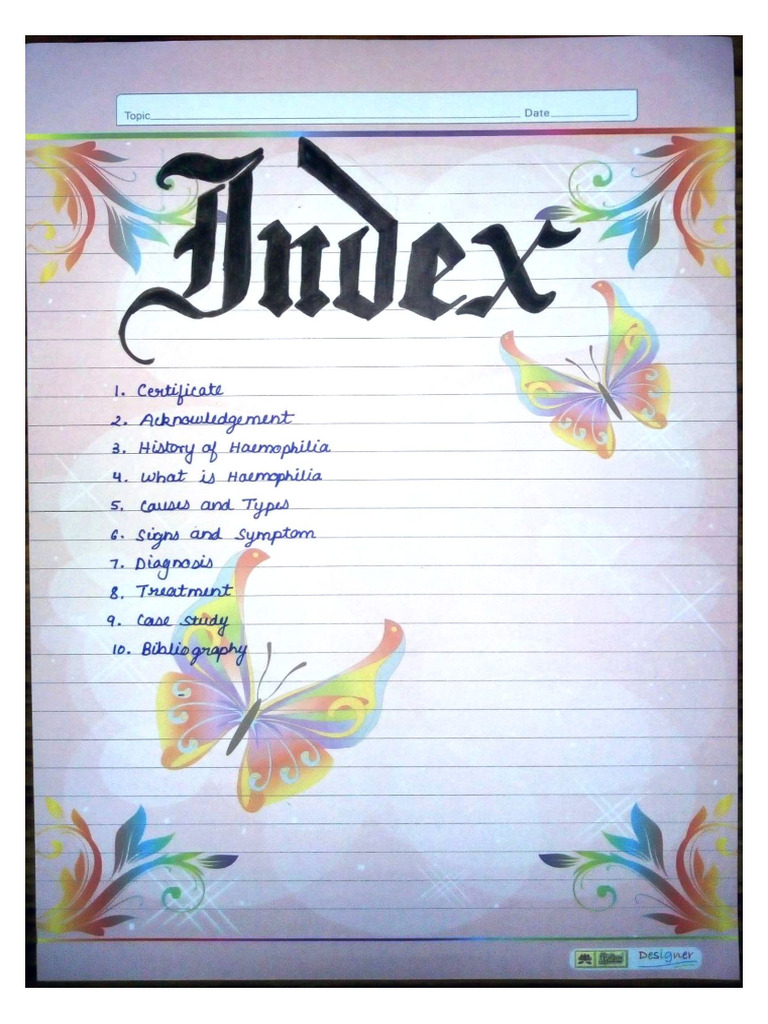 Topic Date
Index
1. Certificate
2. Acknowledgement
3. History of Haemophilia
4. What is Haemophilia
5. Causes and Types
6. Signs and Symptom
7. Diagnosis
8. Treatment
9. Case study
10. Bibliography
Designer